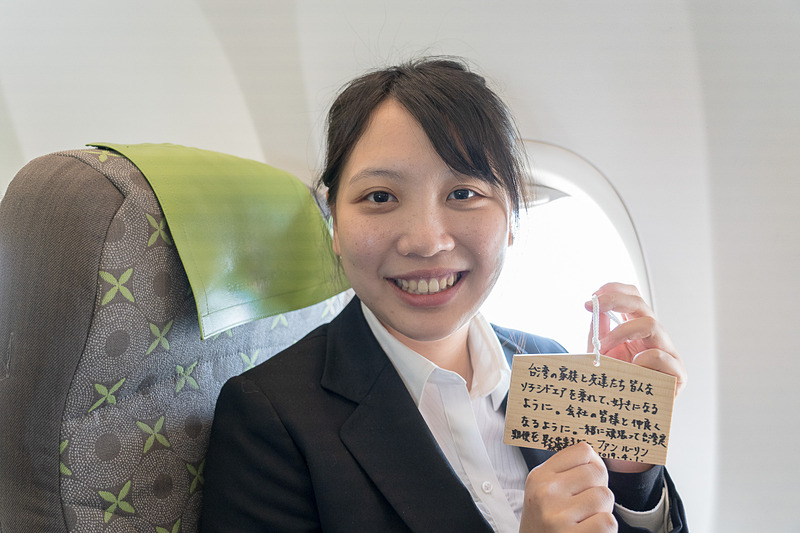 台湾の家族と友達たち皆んな
ソラシドエアを乗れて、好きになる
ように。会社の皆様と仲良く
なるように。一緒に頑張って台湾定
期便を ファン ルーリン
2019.4.1.